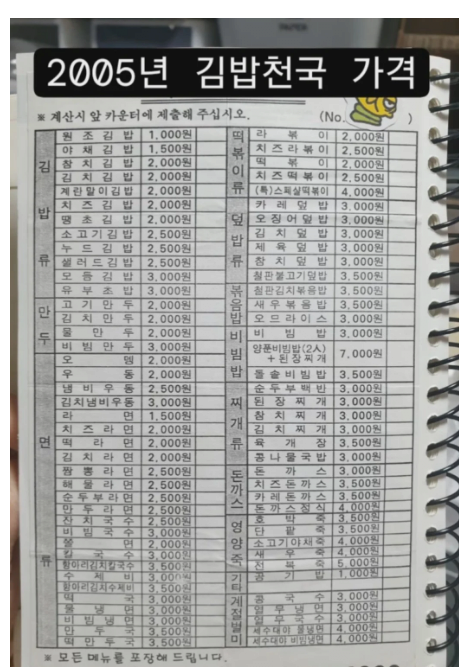 2005년 김밥천국 가격
※ 계산시 앞 카운터에 제출해 주십시오. (No. )
김밥류
원조김밥 1,000원
야채김밥 1,500원
참치김밥 2,000원
김치김밥 2,000원
계란말이김밥 2,000원
치즈김밥 2,000원
땡초김밥 2,000원
소고기김밥 2,000원
누드김밥 2,500원
샐러드김밥 2,000원
모듬김밥 3,000원
유부초밥 3,000원
만두
고기만두 2,000원
김치만두 2,000원
물만두 2,000원
비빔만두 3,000원
오뎅 2,000원
면류
우동 2,000원
냄비우동 2,500원
김치냄비우동 3,000원
라면 1,500원
치즈라면 2,000원
떡라면 2,000원
김치라면 2,000원
짬뽕라면 2,500원
해물라면 2,500원
순두부라면 2,500원
만두라면 2,000원
잔치국수 2,500원
비빔국수 3,000원
쫄면 2,000원
칼국수 3,000원
항아리김치칼국수 3,500원
수제비 3,000원
항아리김치수제비 3,500원
떡국 3,000원
물냉면 3,000원
비빔냉면 3,000원
만두국 3,500원
떡만두국 3,500원
떡볶이류
라볶이 2,000원
치즈라볶이 2,500원
떡볶이 2,000원
치즈떡볶이 2,500원
(특)스페살떡볶이 4,000원
덮밥류
카레덮밥 3,000원
오징어덮밥 3,000원
김치덮밥 3,000원
제육덮밥 3,000원
참치덮밥 3,000원
철판불고기덮밥 3,500원
볶음밥
철판김치볶음밥 3,500원
새우볶음밥 3,500원
오므라이스 3,000원
비빔밥
비빔밥 3,000원
양푼비빔밥(2人)
+된장찌개 7,000원
돌솥비빔밥 3,500원
찌개류
순두부백반 3,000원
된장찌개 3,000원
참치찌개 3,000원
김치찌개 3,000원
육개장 3,500원
콩나물국밥 3,000원
돈까스
돈까스 3,000원
치즈돈까스 3,500원
카레돈까스 3,500원
돈까스정식 4,000원
영양죽
호박죽 3,500원
단팥죽 3,500원
소고기야채죽 4,000원
새우죽 4,000원
전복죽 5,000원
기타
공기밥 1,000원
계절별미
콩국수 3,000원
열무냉면 3,000원
열무국수 3,000원
세숫대야 물냉면 4,000원
세숫대야 비빔냉면 4,000원
※ 모든 메뉴를 포장해 드립니다.